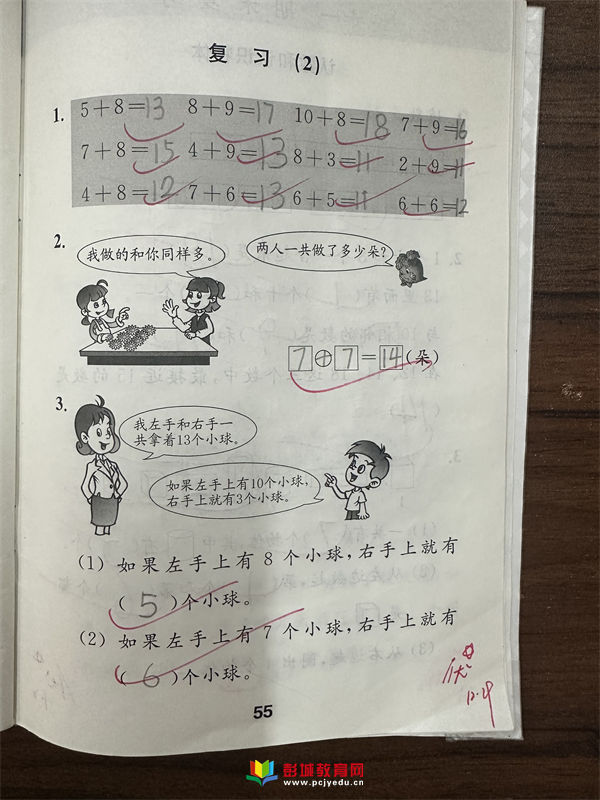 复 习 (2)
1. 5+8=13 8+9=17 10+8=18 7+9=16
7+8=15 4+9=13 8+3=11 2+9=11
4+8=12 7+6=13 6+5=11 6+6=12
2. 我做的和你同样多。 两人一共做了多少朵?
7+7=14(朵)
3. 我左手和右手一
共拿着13个小球。
如果左手上有10个小球,
右手上就有3个小球。
(1) 如果左手上有 8 个小球,右手上就有
( 5 )个小球。
(2) 如果左手上有 7 个小球,右手上就有
( 6 )个小球。
优
12.29
55
彭城教育网
www.pcjyedu.cn